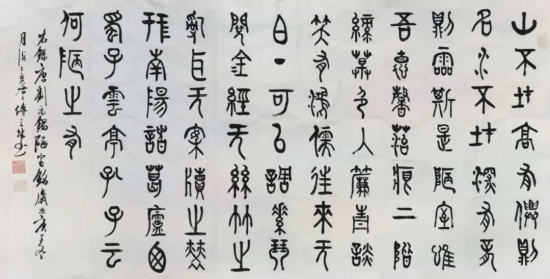 山不在高有僊則
名水不在深有龍
則靈斯是陋室唯
吾惪馨苔痕上階
綠草色入簾青談
笑有鴻儒往來无
白丁可以調素琴
閱金經无絲竹之
亂耳无案牘之勞
形南陽諸葛廬西
蜀子雲亭孔子云
何陋之有
唐劉禹錫陋室銘歲在